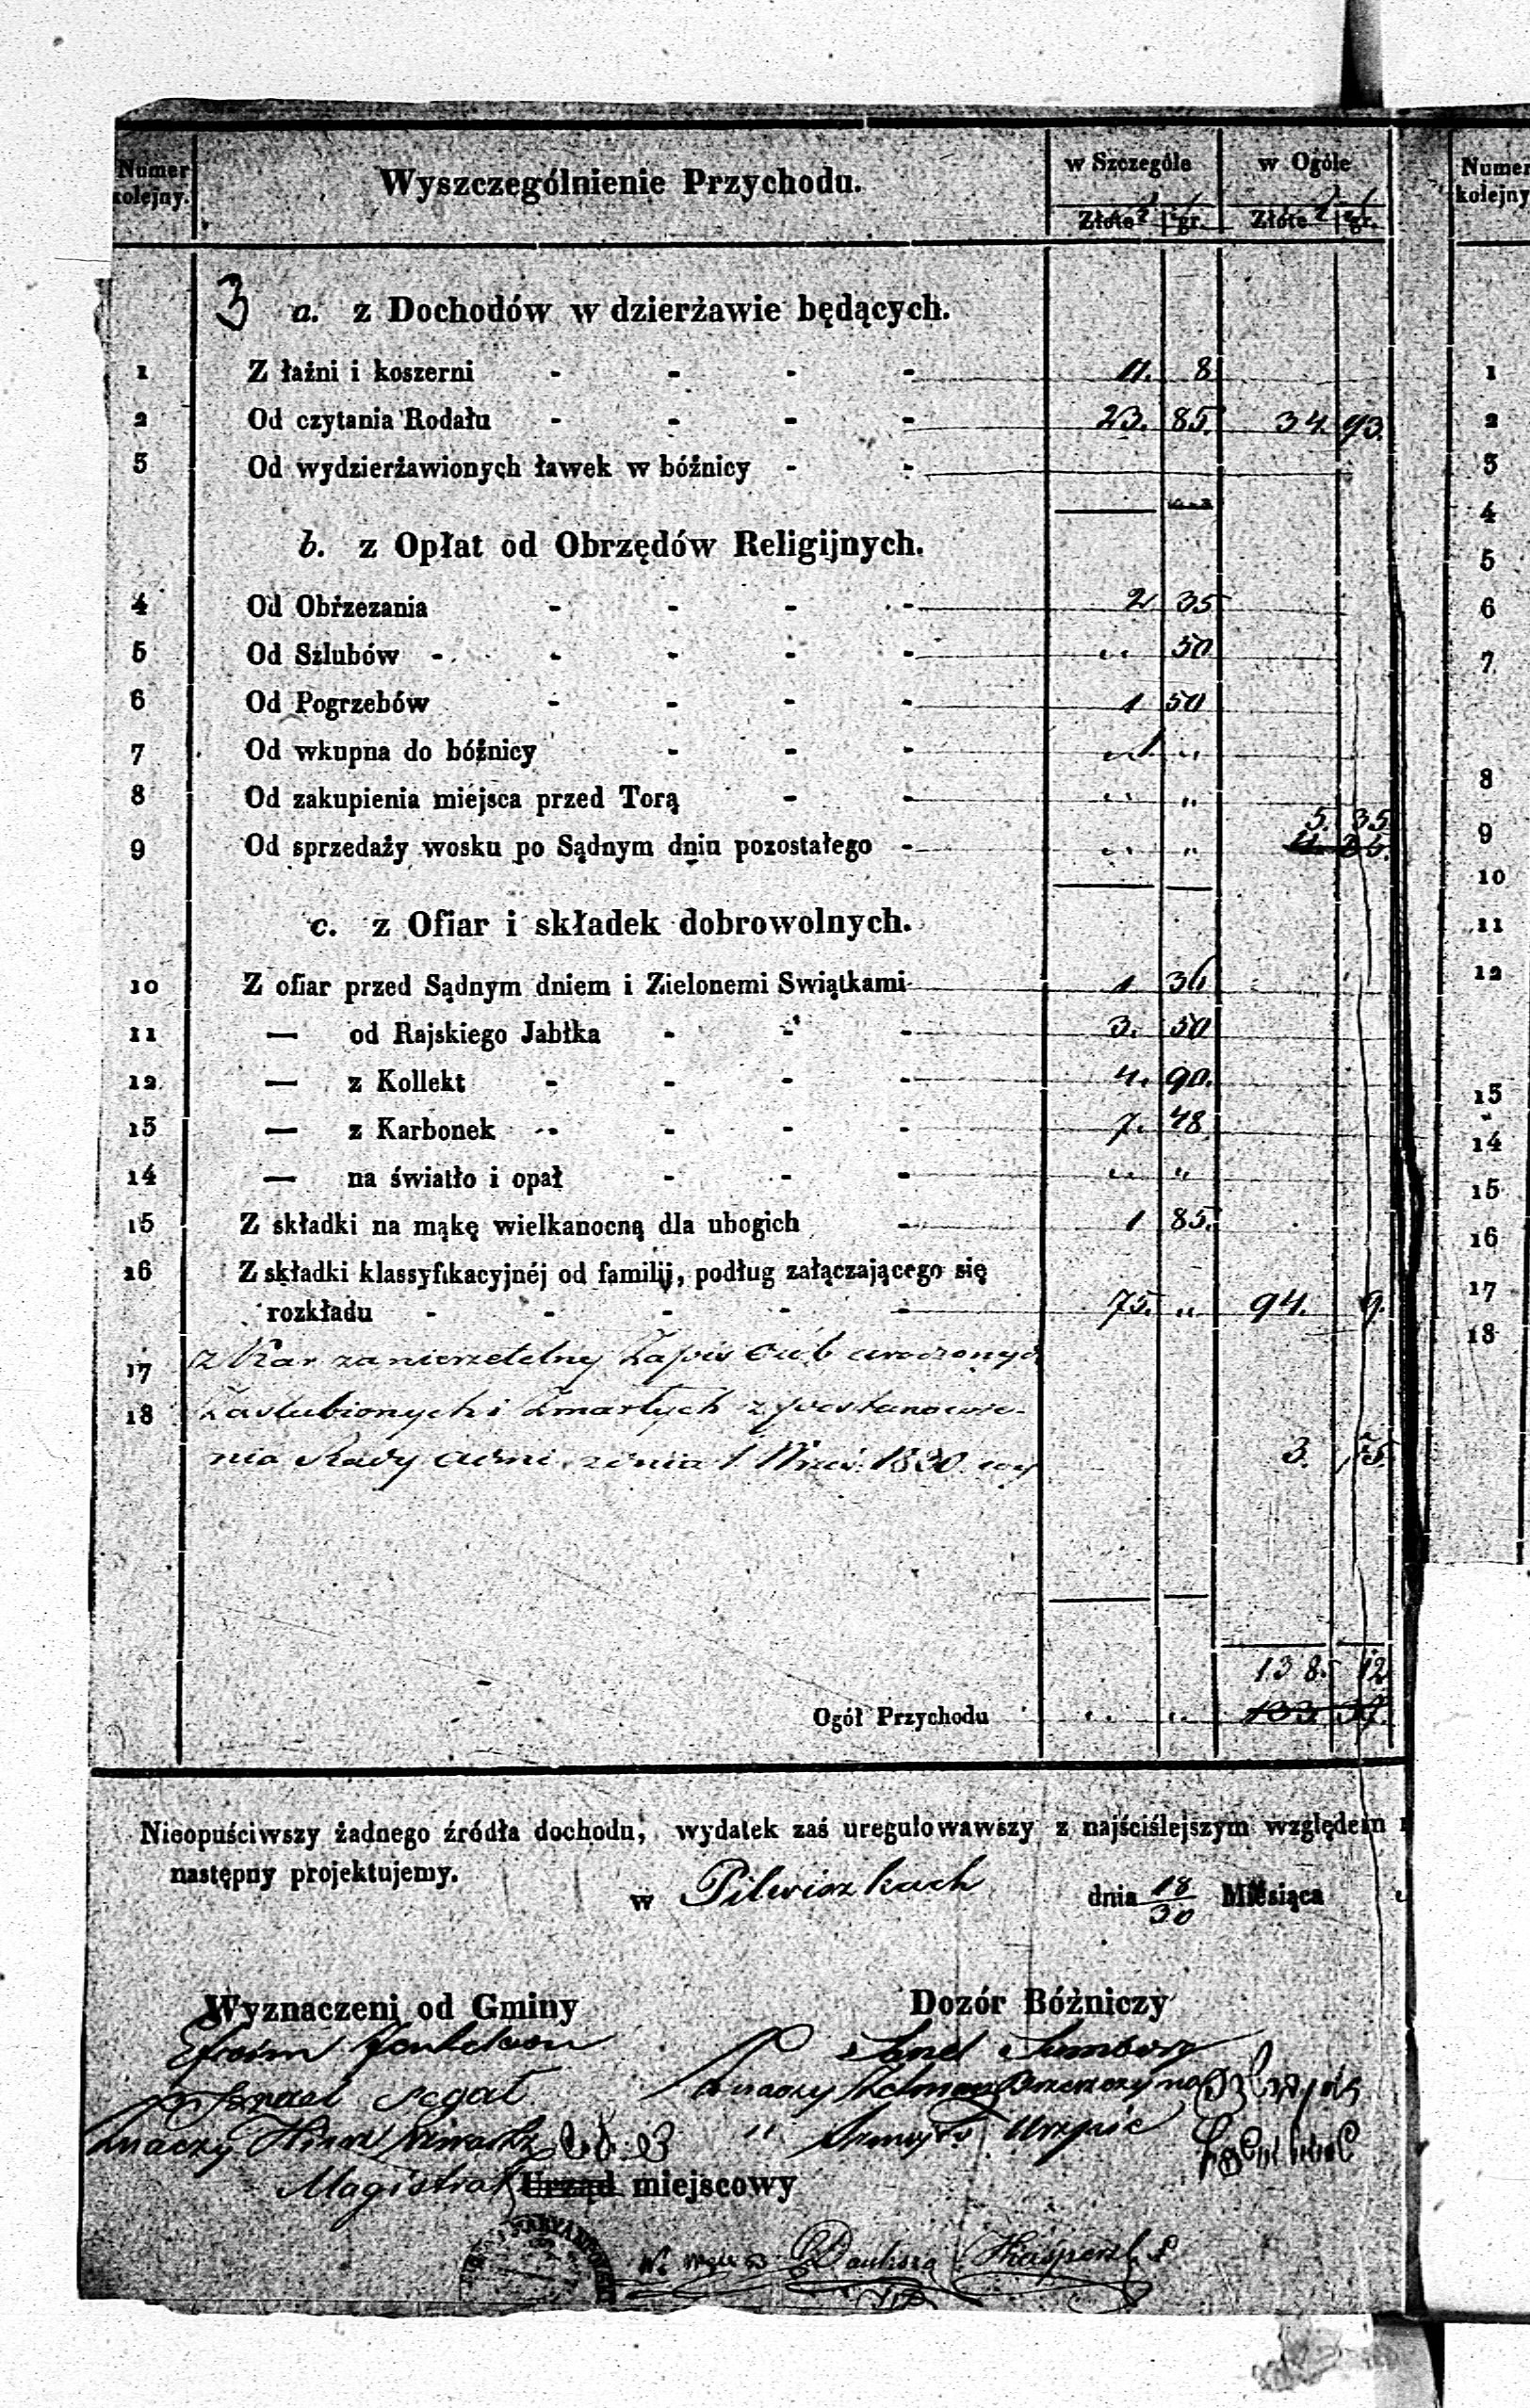 Numer kolejny. Wyszczególnienie Przychodu. w Szczególe w Ogóle Numer kolejny
Złote gr. Złote gr.
3 a. z Dochodów w dzierżawie będących.
1 Z łaźni i koszerni - - - - 11. 8 1
2 Od czytania Rodału - - - - 23. 85. 34. 93. 2
3 Od wydzierżawionych ławek w bóźnicy - - 3
4
b. z Opłat od Obrzędów Religijnych. 5
4 Od Obrzezania - - - - 2 35 6
5 Od Szlubów - - - - - „ 50 7
6 Od Pogrzebów - - - - 1 50
7 Od wkupna do bóźnicy - - - 1 „
8 Od zakupienia miejsca przed Torą - - „ „ 8
5. 35
9 Od sprzedaży wosku po Sądnym dniu pozostałego - „ „ 9
10
c. z Ofiar i składek dobrowolnych. 11
10 Z ofiar przed Sądnym dniem i Zielonemi Swiątkami 1 36 12
11 — od Rajskiego Jabłka - - - 3. 50
12 — z Kollekt - - - - 4. 90.
13 — z Karbonek - - - - 7. 48. 13
14 — na światło i opał - - - „ „ 14
15 Z składki na mąkę wielkanocną dla ubogich - 1 85. 15
16 Z składki klassyfikacyjnéj od familij, podług załączającego się 16
rozkładu - - - - - 75. „ 94. 9. 17
17 z Kar za nierzetelny Zapis Osób urodzonych 18
18 Zaślubionych i Zmarłych z postanowie-
nia Rady Admi. z dnia 1 Wrześ. 1830. 3. 75.
138. 12
Ogół Przychodu „ „ 133. 37.
Nieopuściwszy żadnego źródła dochodu, wydatek zaś uregulowawszy z najściślejszym względem
następny projektujemy.
w Pilwiszkach dnia 18/30 Miesiąca
Wyznaczeni od Gminy Dozór Bóżniczy
Efroim Jankelson
Izrael Segał
Znaczy
Magistrat Urząd miejscowy